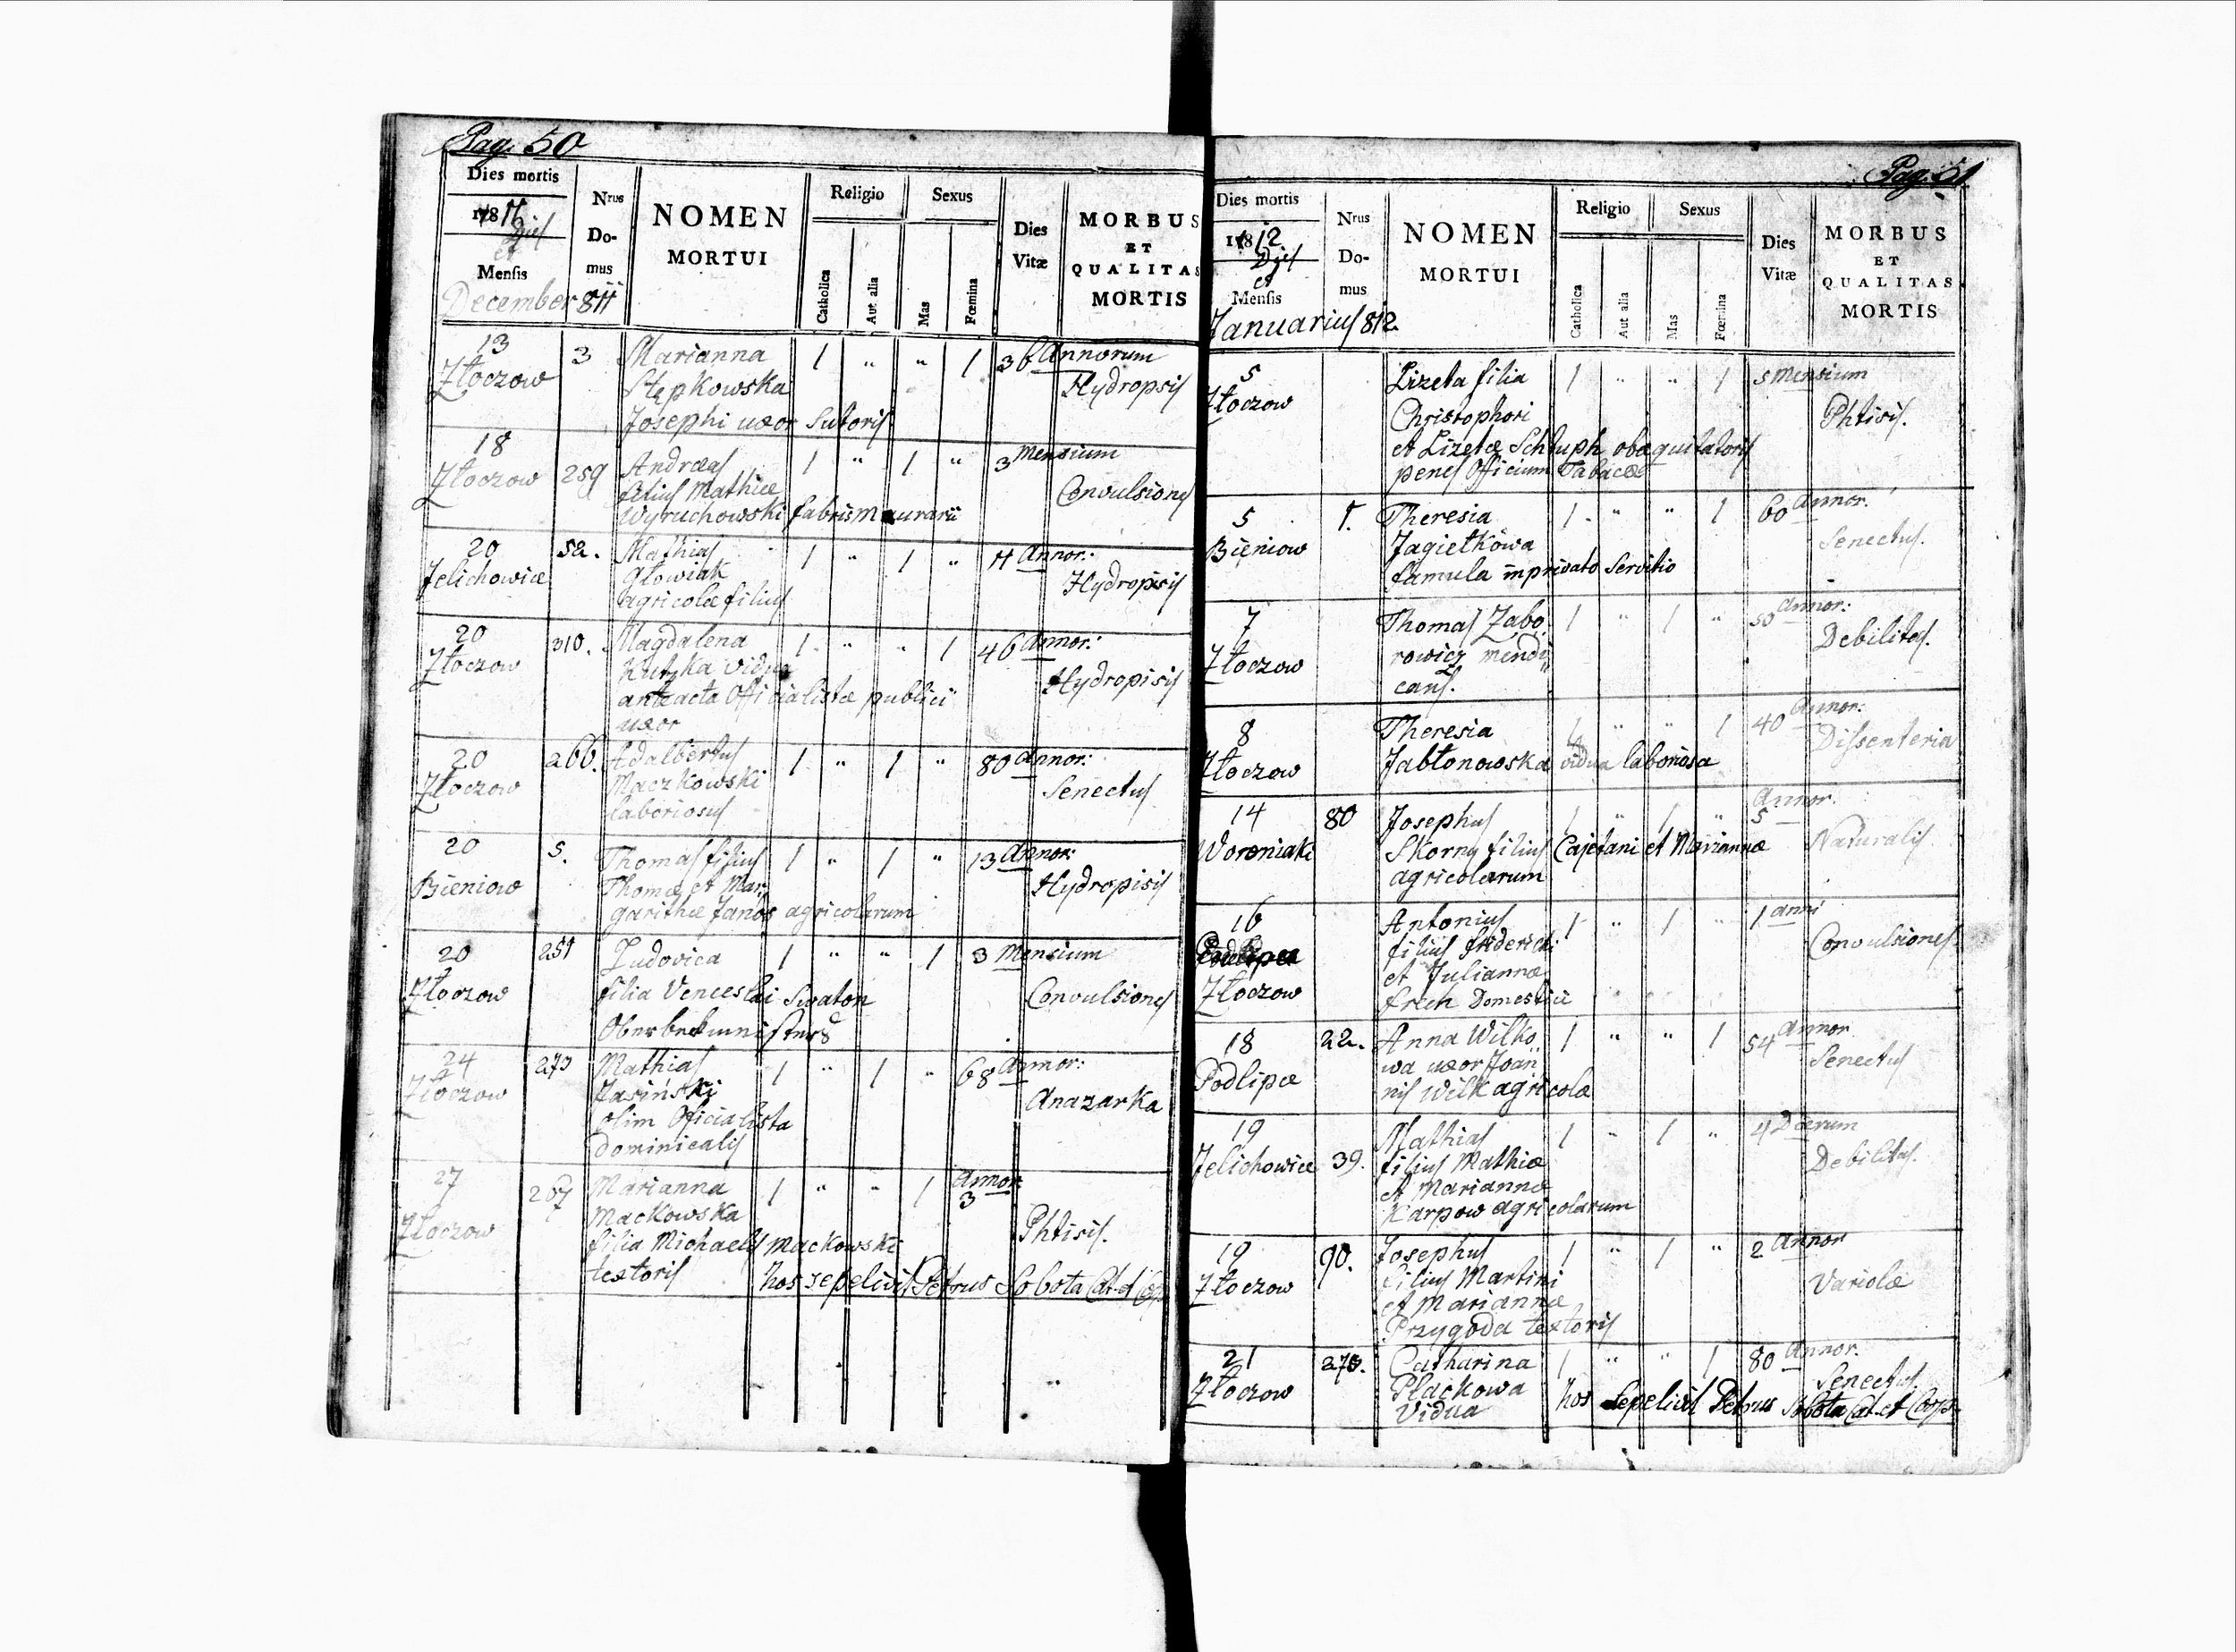 Pag. 50
Dies mortis
Nrus
Do-
mus
NOMEN
MORTUI
Religio
Sexus
Catholica
Aut alia
Mas
Fœmina
Dies
Vitæ
MORBUS
ET
QUALITAS
MORTIS
Dies
et
Mensis
December 811
13
Złoczow
3
Marianna
Stępkowska
Josephi uxor Sutoris
1 " " 1
36 Annorum
Hydropsis
18
Złoczow
259
Andreas
filius Mathiæ
Wyruchowski fabris murarii
1 " 1 "
3 Mensium
Convulsiones
20
Jelichowice
52.
Mathias
Głowiak
agricolæ filius
1 " 1 "
Annor:
Hydropisis
20
Złoczow
310.
Magdalena
Vidua
anteacta Officialistæ publici
uxor
1 " " 1
46 Annor:
Hydropisis
20
Złoczow
266.
Adalbertus
Maczkowski
laboriosus
1 " 1 "
80 Annor:
Senectus
20
Bieniow
5.
Thomas filius
Thomæ et Mar,,
garithæ Janos agricolarum
1 " 1 "
13 Annor:
Hydropisis
20
Złoczow
251
Ludovica
filia Venceslai Swaton
1 " " 1
3 Mensium
Convulsiones
24
Złoczow
273
Mathias
Jasiński
olim Oficialista
Dominicalis
1 " 1 "
68 Annor:
Anazarka
27
Złoczow
267
Marianna
Mackowska
filia Michaelis Mackowski
textoris
1 " " 1
Annor:
3
Phtisis.
hos sepelivit Petrus Sobota Cat. et Coop
Pag. 51.
Dies mortis
Nrus
Do-
mus
NOMEN
MORTUI
Religio
Sexus
Catholica
Aut alia
Mas
Fœmina
Dies
Vitæ
MORBUS
ET
QUALITAS
MORTIS
1812.
Dies
et
Mensis
Januarius 812.
5
Złoczow
Lizeta filia
Christophori
et Lizetæ Schtuph obequitatoris
penes Officium Tabacæ
1 " " 1
5 Mensium
Phtisis.
5
Bieniow
1.
Theresia
Jagiełkowa
famula in privato Servitio
1 " " 1
60 Annor.
Senectus.
7
Złoczow
Thomas Zabo,,
rowicz mendi,,
cans.
1 " 1 "
50 Annor:
Debilitas.
8
Złoczow
Theresia
Jabłonowska vidua laboriosa
1 " " 1
40 Annor:
Dissenteria
14
Woroniaki
80
Josephus
Skorny filius Cajetani et Mariannæ
agricolarum
1 " 1 "
Annor.
5
Naturalis
16
Złoczow
Antonius
filius friderici
et Juliannæ
frech Domestici
1 " 1 "
1 anni
Convulsiones.
18
Podlipce
22.
Anna Wilko
wa uxor Joan
nis Wilk agricolæ
1 " " 1
54 Annor
Senectus
19
Jelichowice
39.
Mathias
filius Mathiæ
et Mariannæ
Karpow agricolarum
1 " 1 "
4 Dierum
Debilitas.
19
Złoczow
90.
Josephus
filius Martini
et Mariannæ
Przygoda textoris
1 " 1 "
2 Annor
Variolæ
21
Złoczow
Catharina
Plackowa
Vidua
1 " " 1
80 Annor.
Senectus.
hos Sepelivit Petrus Sobota Cat. et Coop.